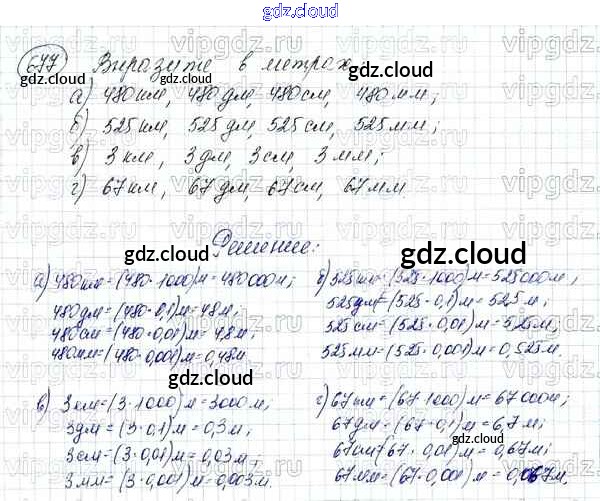 gdz.cloud
677 Выразите в метрах
gdz.cloud gdz.cloud
а) 480 км, 480 дм, 480 см, 480 мм;
б) 525 км, 525 дм, 525 см, 525 мм;
в) 3 км, 3 дм, 3 см, 3 мм;
г) 67 км, 67 дм, 67 см, 67 мм.
gdz.cloud
Решение:
gdz.cloud gdz.cloud
а) 480 км = (480·1000) м = 480 000 м;
480 дм = (480·0,1) м = 48 м;
480 см = (480·0,01) м = 4,8 м;
480 мм = (480·0,001) м = 0,48 м.
б) 525 км = (525·1000) м = 525 000 м;
525 дм = (525·0,1) м = 52,5 м;
525 см = (525·0,01) м = 5,25 м;
525 мм = (525·0,001) м = 0,525 м.
gdz.cloud
в) 3 км = (3·1000) м = 3000 м;
3 дм = (3·0,1) м = 0,3 м;
3 см = (3·0,01) м = 0,03 м;
3 мм = (3·0,001) м = 0,003 м.
г) 67 км = (67·1000) м = 67 000 м;
67 дм = (67·0,1) м = 6,7 м;
67 см = (67·0,01) м = 0,67 м;
67 мм = (67·0,001) м = 0,067 м.
gdz.cloud
gdz.cloud